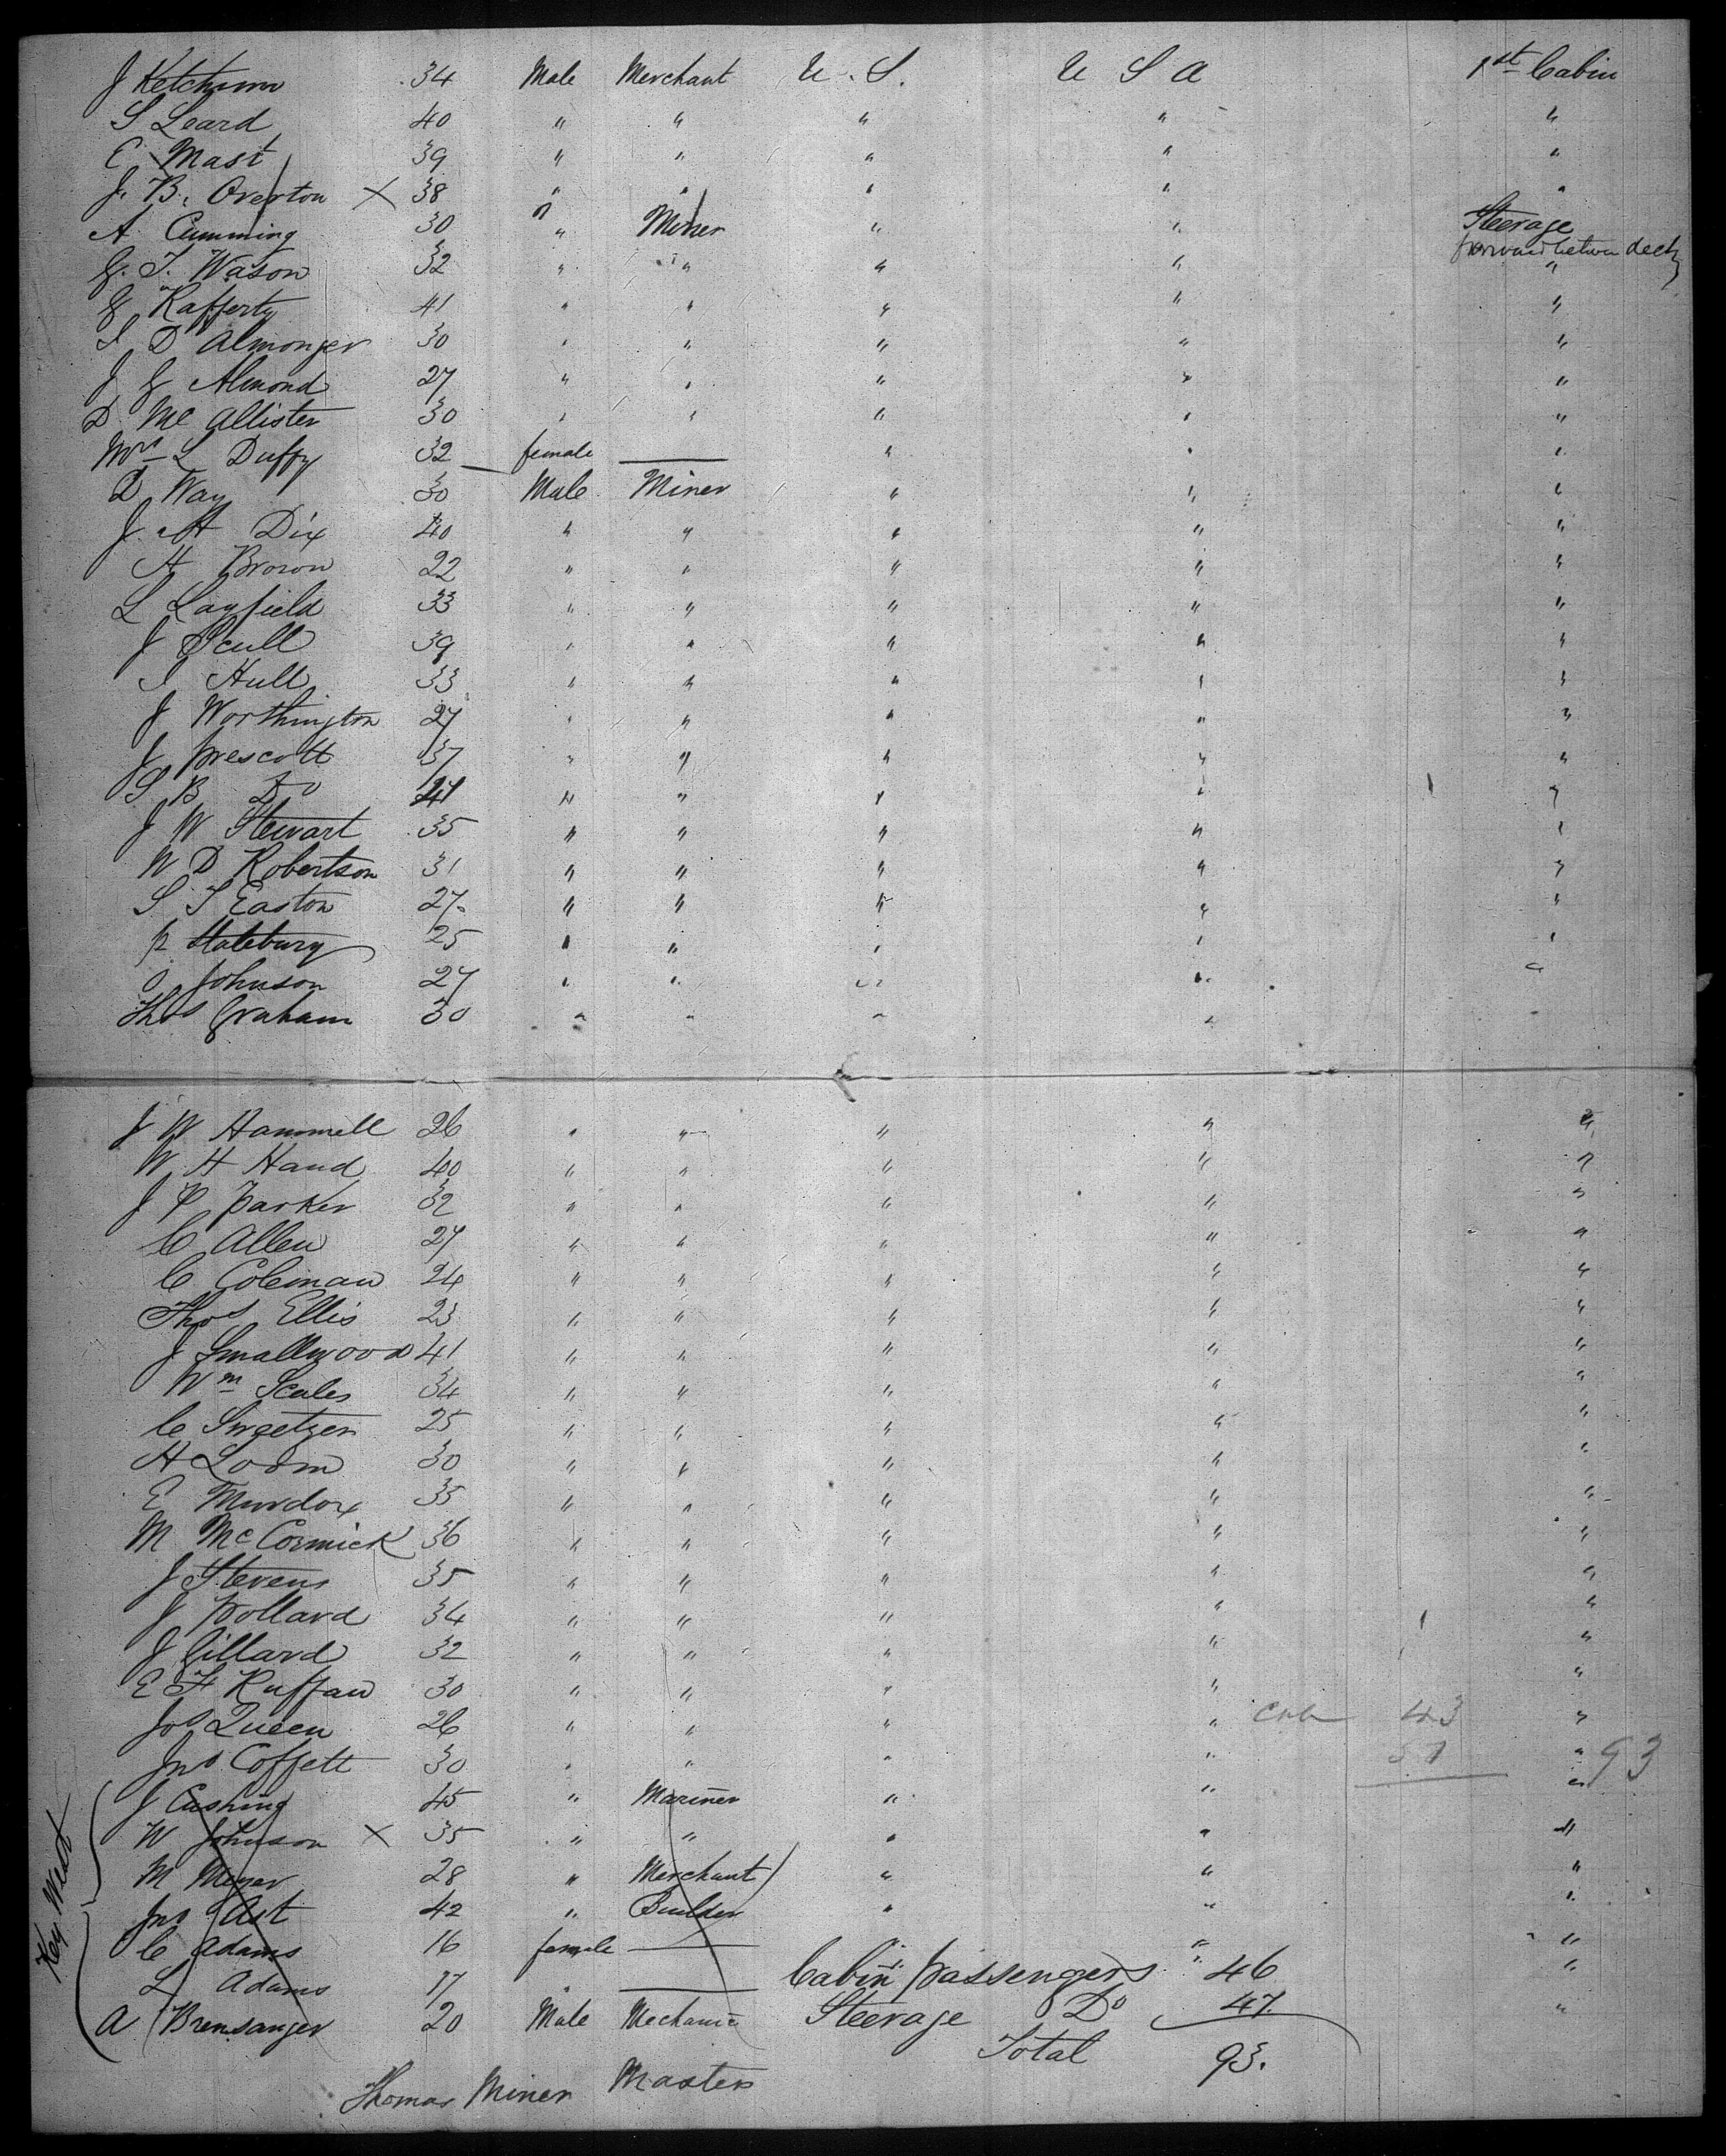 J Ketchum 34 Male Merchant U. S. U S A 1st Cabin
S Leard 40 " " " " "
C Mast 39 " " " " "
J. B. Overton X 38 " " " " "
A Cumming 30 " Miner " " Steerage
forward between decks
G. T. Wason 32 " " " " "
Rafferty 41 " " " " "
D Almonger 30 " " " " "
J G Almond 27 " " " " "
D Mc Allister 30 " " " " "
Mrs L Duffy 32 female — " " "
D Way 30 Male Miner " " "
J. H Dix 40 " " " " "
H Brown 22 " " " " "
L Layfield 33 " " " " "
J Scull 39 " " " " "
Hull 33 " " " " "
J Worthington 27 " " " " "
J Prescott 37 " " " " "
S B Do " " " " "
J W Stewart 35 " " " " "
W D Robertson 31 " " " " "
S T Easton 27 " " " " "
P Stalebury 25 " " " " "
Johnson 27 " " " " "
Thos Graham 30 " " " " "
J W Hammell 26 " " " " "
W H Hand 40 " " " " "
J P Parker 32 " " " " "
C Allen 27 " " " " "
C Coleman 24 " " " " "
Thos Ellis 23 " " " " "
J Smallwood 41 " " " " "
Wm Scales 34 " " " " "
C Swetzer 25 " " " " "
H Loom 30 " " " " "
E Murdox 35 " " " " "
M McCormick 36 " " " " "
J Stevens 35 " " " " "
J Pollard 34 " " " " "
J Gillard 32 " " " " "
E F Ruffan 30 " " " " "
Jos Queen 26 " " " " 43 "
Jno Coffett 30 " " " " " 93
J Cushing 45 " Mariner " " "
Key West
W Johnson X 35 " " " " "
M Meyer 28 " Merchant " " "
Jno Ast 42 " Builder " " "
C Adams 16 female — " " "
L Adams 17 " — Cabin passengers " 46 "
A Brensanger 20 Male Mechanic Steerage Do 47 "
Total 93.
Thomas Miner Master